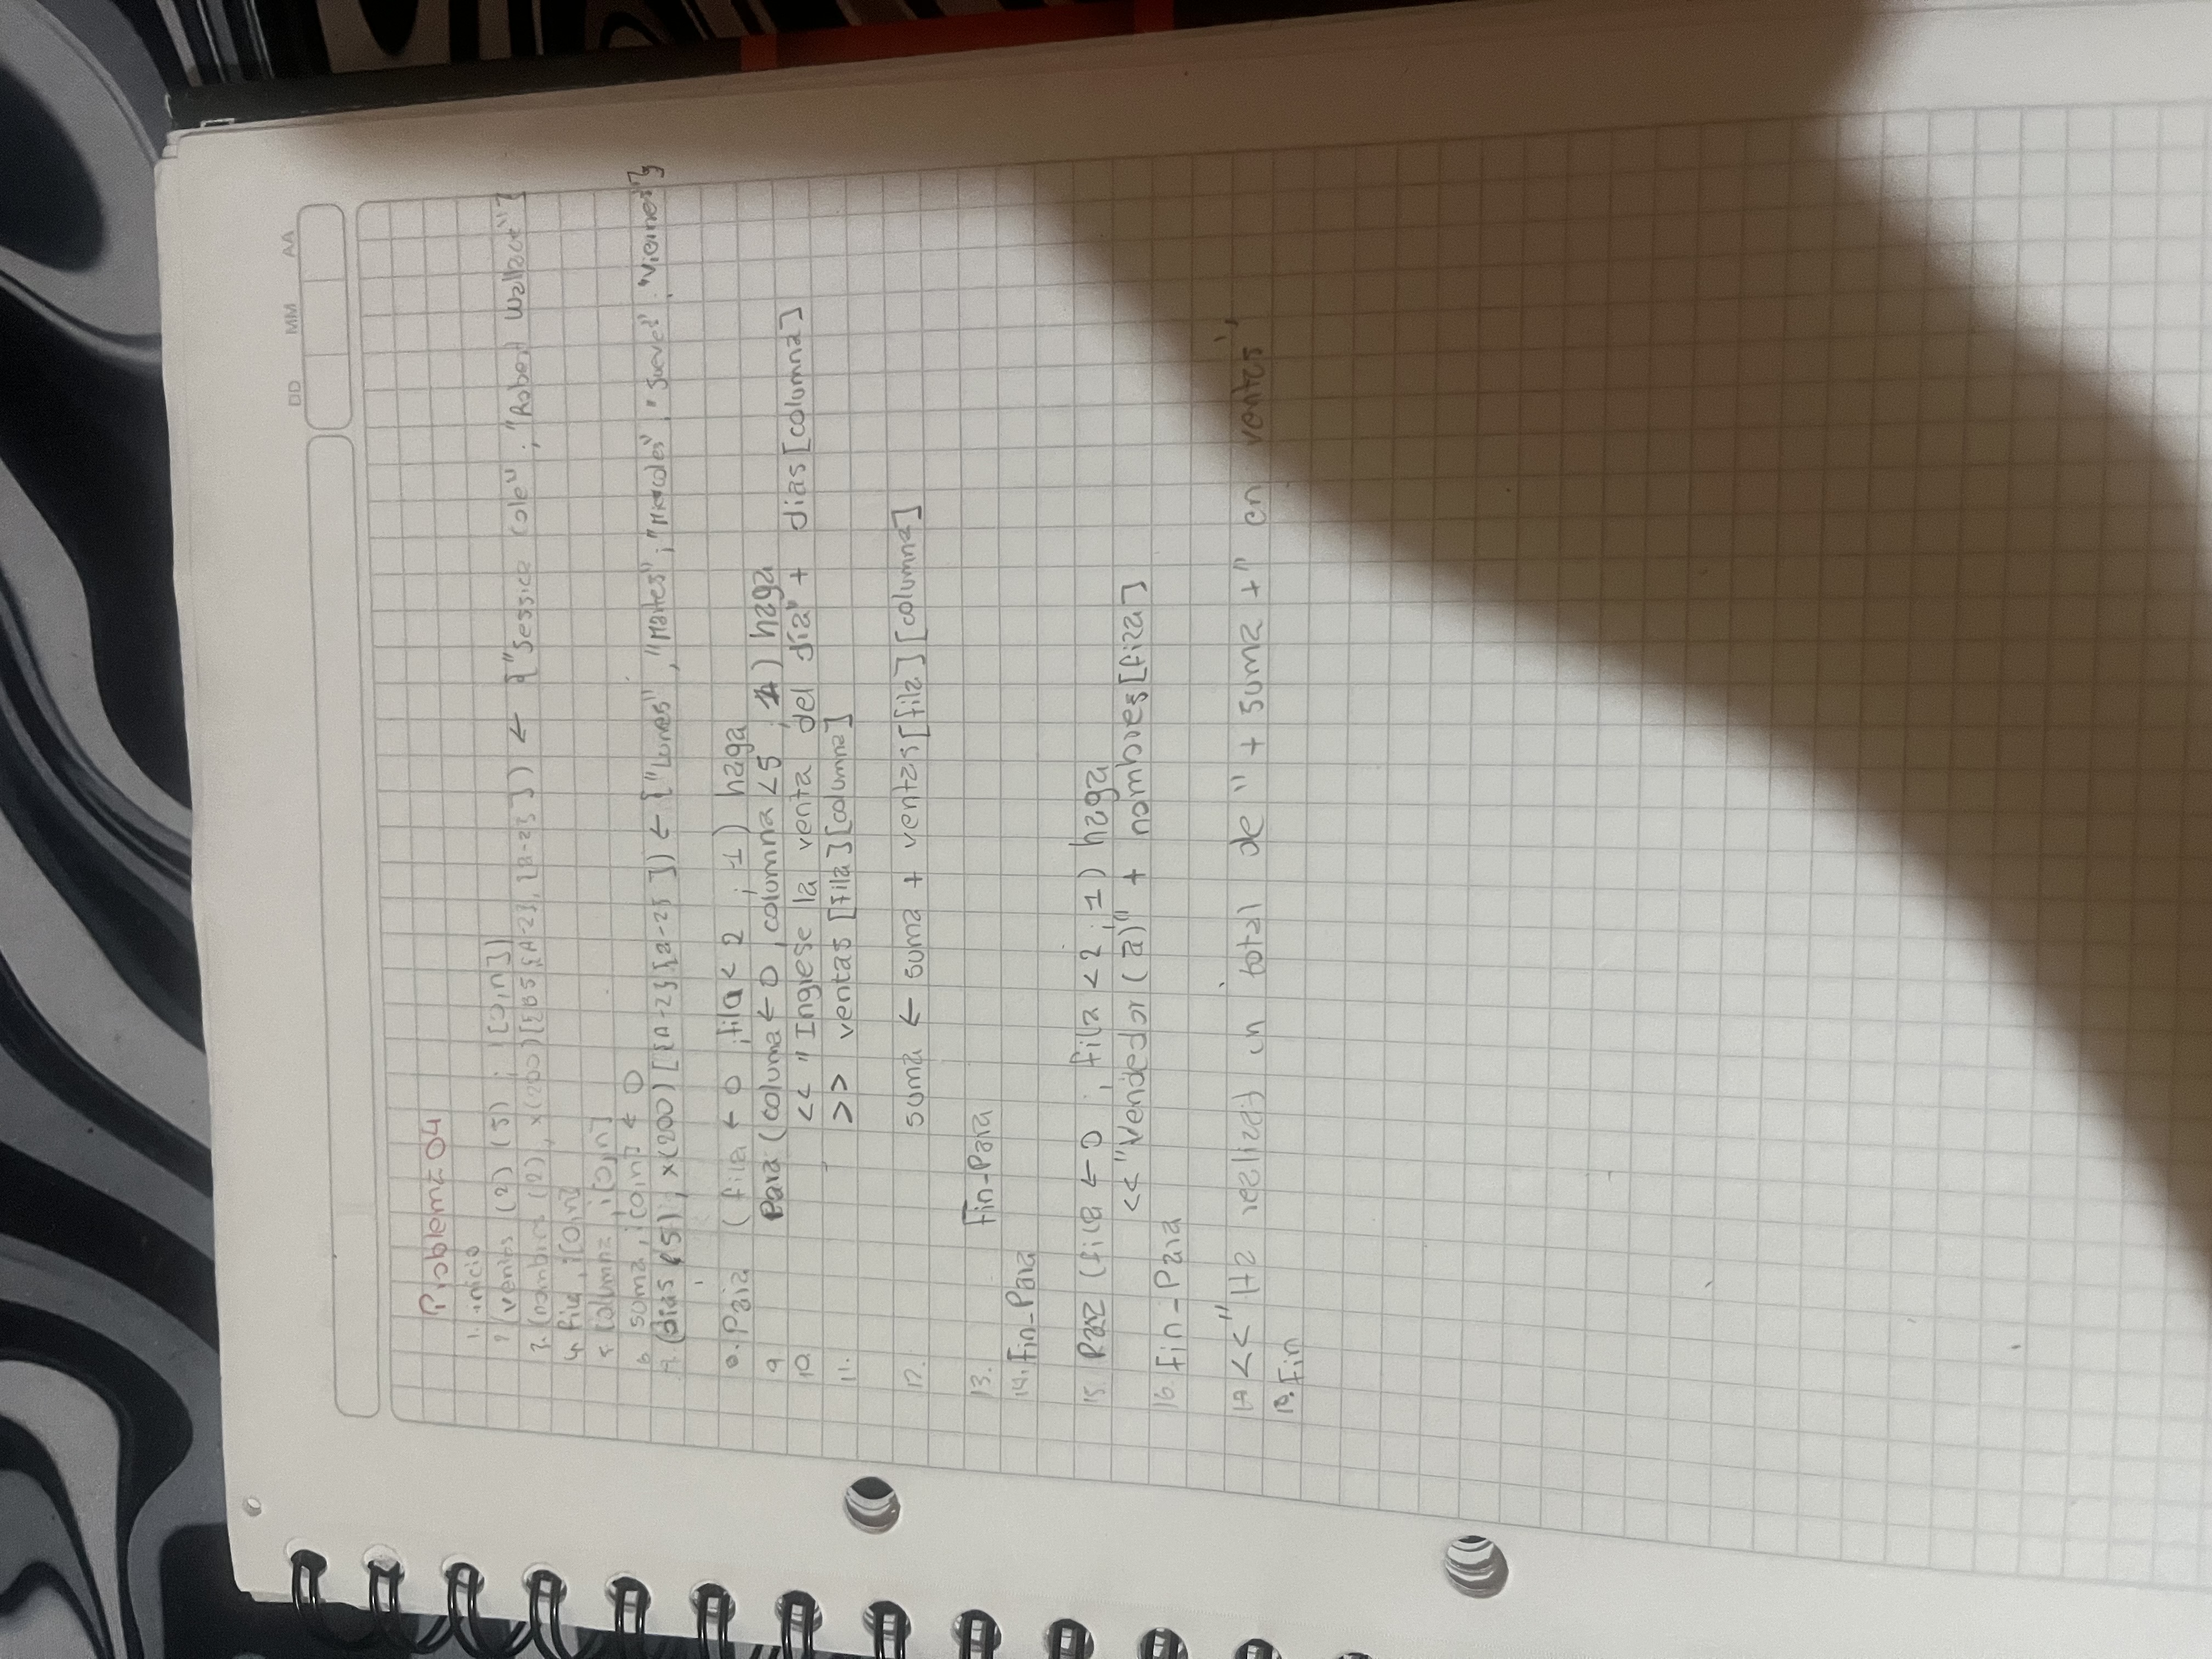 DD MM AA
Problema 04
1. inicio
2 (ventas (2) (5) ; i[0,n])
3. (nombres (2), x(200)[{05{A-z}, {a-z} ]) ← {"Jessica Cole" ; "Robert Wallace"}
4. fila, i[0,n]
5. columna, i[0,n]
6 suma, i[0,n] ← 0
7. (dias (5), x(200) [{A-z}{a-z} ]) ← {"Lunes" , "Martes" ; "Miercoles" , "Jueves" , "Viernes"}
8. Para (fila ← 0 ; fila < 2 ; 1) haga
9 Para (columa ← 0 , columna < 5 ; 1) haga
10. << "Ingrese la venta del dia" + dias[columna]
11. >> ventas [fila][columna]
12. suma ← suma + ventas[fila][columna]
13. Fin-Para
14. Fin-Para
15. Para (fila ← 0 ; fila < 2 ; 1) haga
<< "Vendedor (a)" + nombres[fila]
16. Fin-Para
17 << "Ha un total de " + suma + " en ventas"
18. Fin